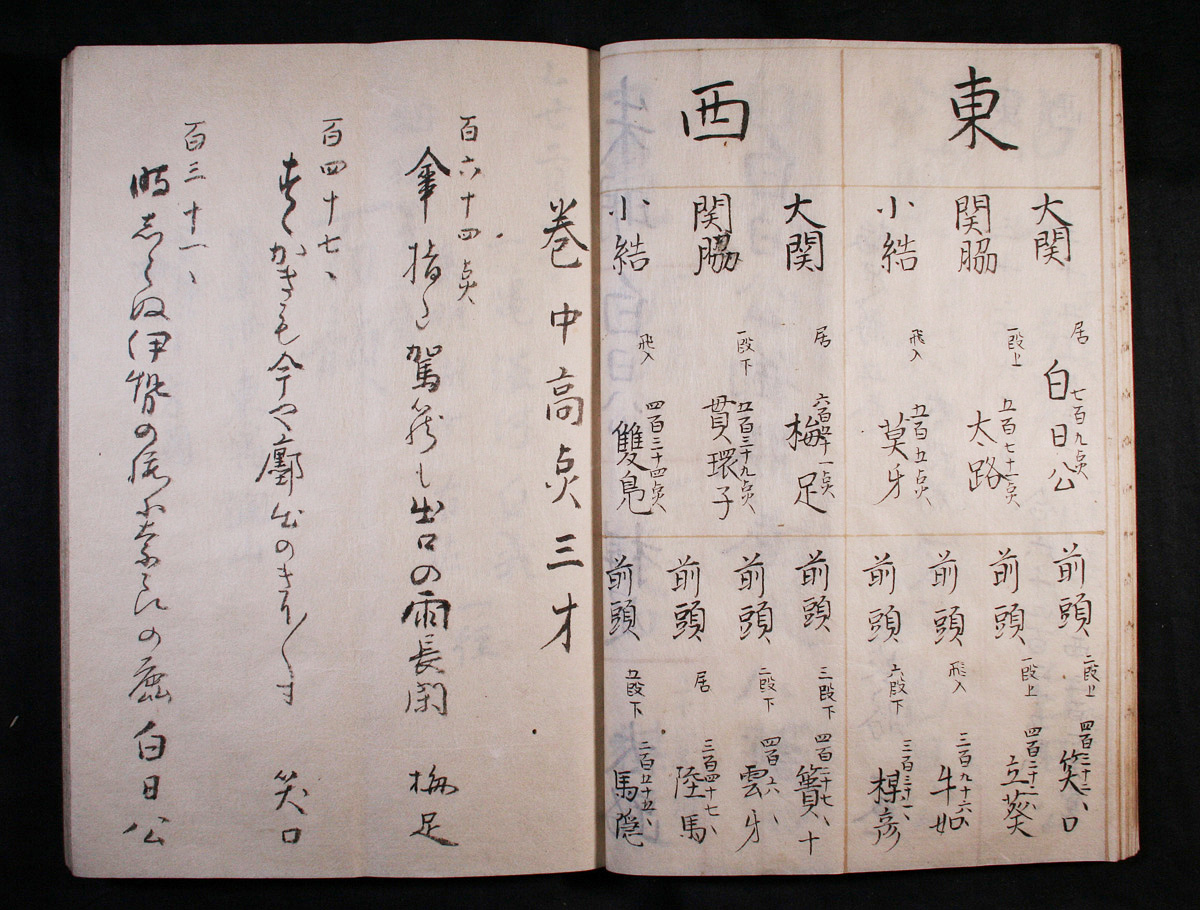 東
大関
居
七百九点
白日公
関脇
一段上
五百七十一点
太路
小結
飛入
五百五点
莫牙
西
大関
居
六百四十一点
梅足
関脇
一段下
五百三十九点
貫環子
小結
飛入
四百三十四点
雙鳬
前頭
二段上
四百三十二、
笑口
前頭
一段上
四百二十六、
立葵
前頭
飛入
三百九十六、
牛如
前頭
六段下
三百三十一、
彦
前頭
三段下
四百二十七、
簀十
前頭
二段下
四百六、
雲牙
前頭
居
三百四十七、
陸馬
前頭
五段下
二百五十五、
馬隠
巻中高点三才
百六十四点
傘指て駕籠も出口の雨長閑
梅足
百四十七、
かきも今や廓出のきり〳〵す
笑口
百三十一、
時しらぬ伊勢の
白日公